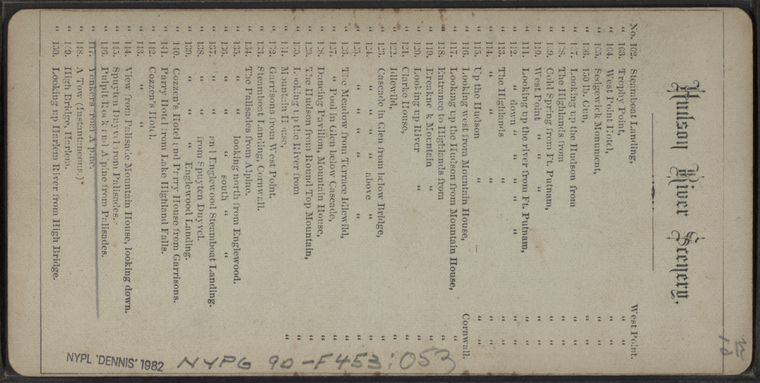 Hudson River Scenery.
No. 102. Steamboat Landing, West Point.
" 103. Trophy Point, "
" 104. West Point Hotel, "
" 105. Sedgewick Monument, "
" 106. 150 lb. Gun, "
" 107. Looking up the Hudson from "
" 108. The Highlands from "
" 109. Cold Spring from Ft. Putnam, "
" 110. West Point " " " "
" 111. Looking up the river from Ft. Putnam, "
" 112. " down " " " " " "
" 113. The Highlands " "
" 114. " " "
" 115. Up the Hudson " "
" 116. Looking west from Mountain House, Cornwall.
" 117. Looking up the Hudson from Mountain House, "
" 118. Entrance to Highlands from " "
" 119. Breakneck Mountain " "
" 120. Looking up River " "
" 121. House, "
" 122. Idlewild, "
" 123. Cascade in Glen from below Bridge, "
" 124. " " " " above " "
" 125. " " " " "
" 126. The Meadow from Terrace Idlewild, "
" 127. " Pool in Glen below Cascade, "
" 128. Dancing Pavilion, Mountain House, "
" 129. The Hudson from Round Top Mountain, "
" 130. Looking up the River from " "
" 131. Mountain House, "
" 132. Garrisons from West Point.
" 133. Steamboat Landing, Cornwall.
" 134. The Palisades from Alpine.
" 135. " " looking north from Englewood.
" 136. " " " south " "
" 137. " " and Englewood Steamboat Landing.
" 138. " " from Spuyten Duyvel.
" 139. " " " Englewood Landing.
" 140. Cozzen's Hotel and Perry House from Garrisons.
" 141. Parry Hotel from Lake Highland Falls.
" 142. Cozzen's Hotel.
" 143. " "
" 144. View from Palisade Mountain House, looking down.
" 145. Spuyten Duyvel from Palisades.
" 146. Pulpit Rock and Alpine from Palisades.
" 147. Yonkers from Alpine.
" 148. A Tow (Instantaneous.)
" 149. High Bridge, Harlem.
" 150. Looking up Harlem River from High Bridge.
NYPL 'DENNIS' 1982
NYPG 90-F453:053